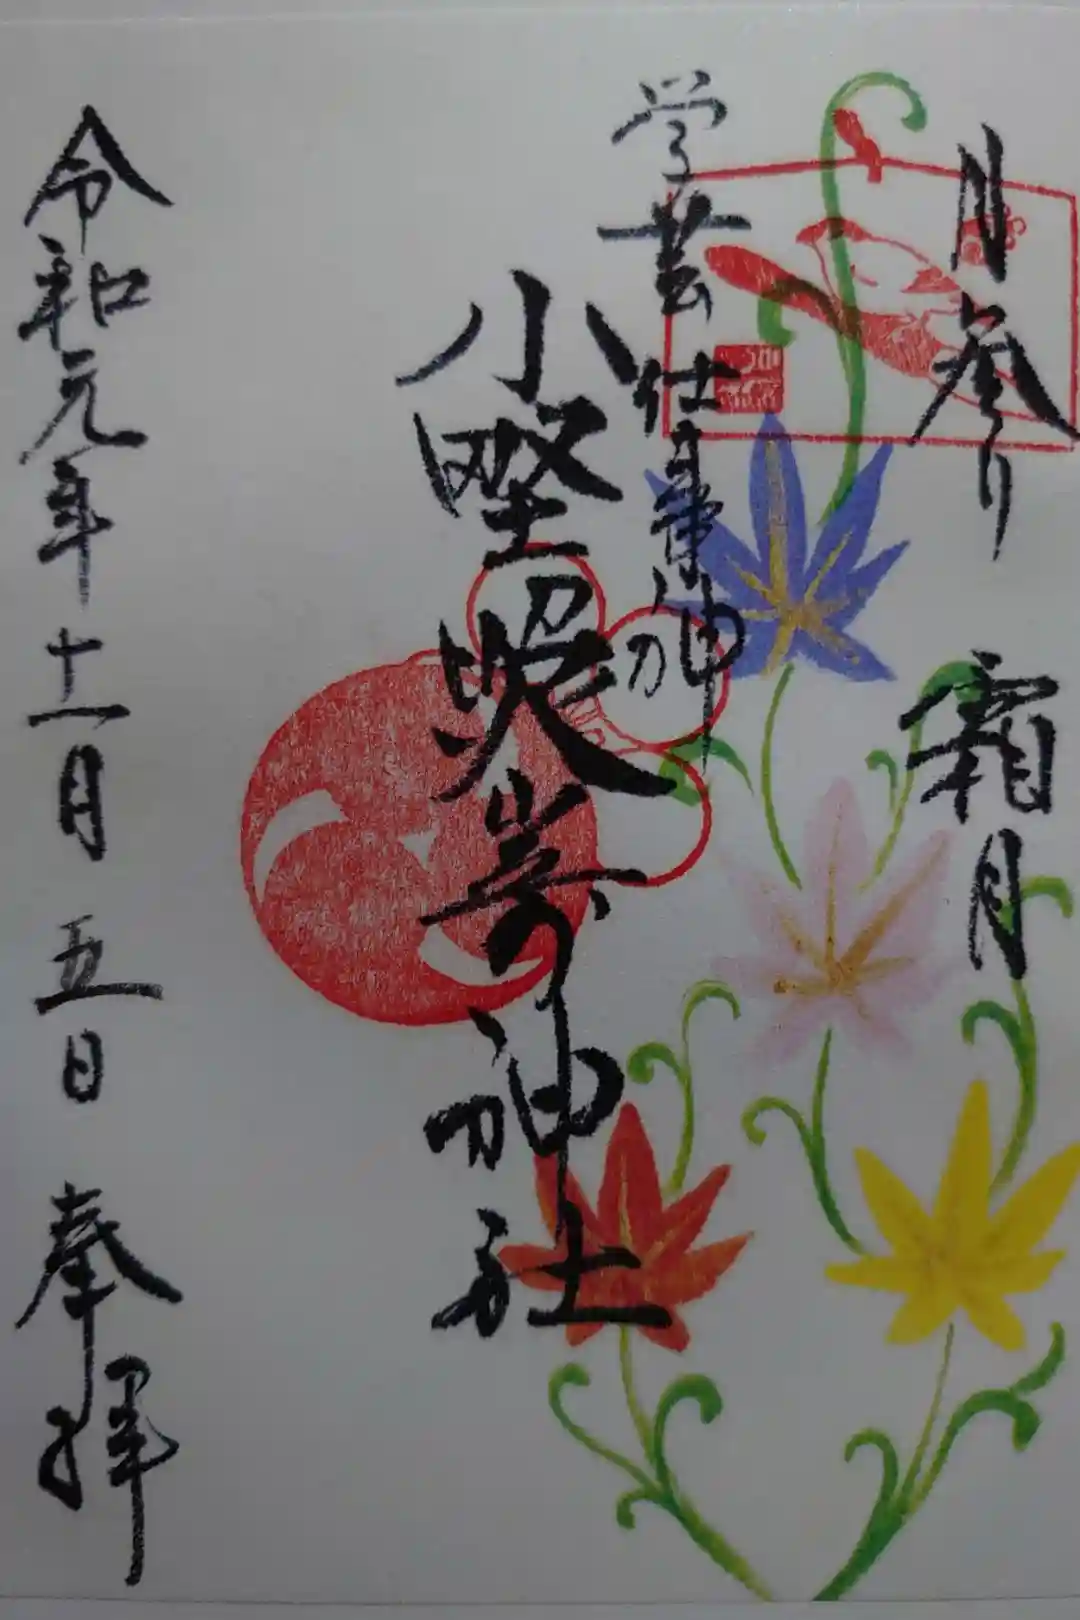 月参り
霜月
学芸 仕事神
小野照崎神社
令和元年十一月五日 奉拝